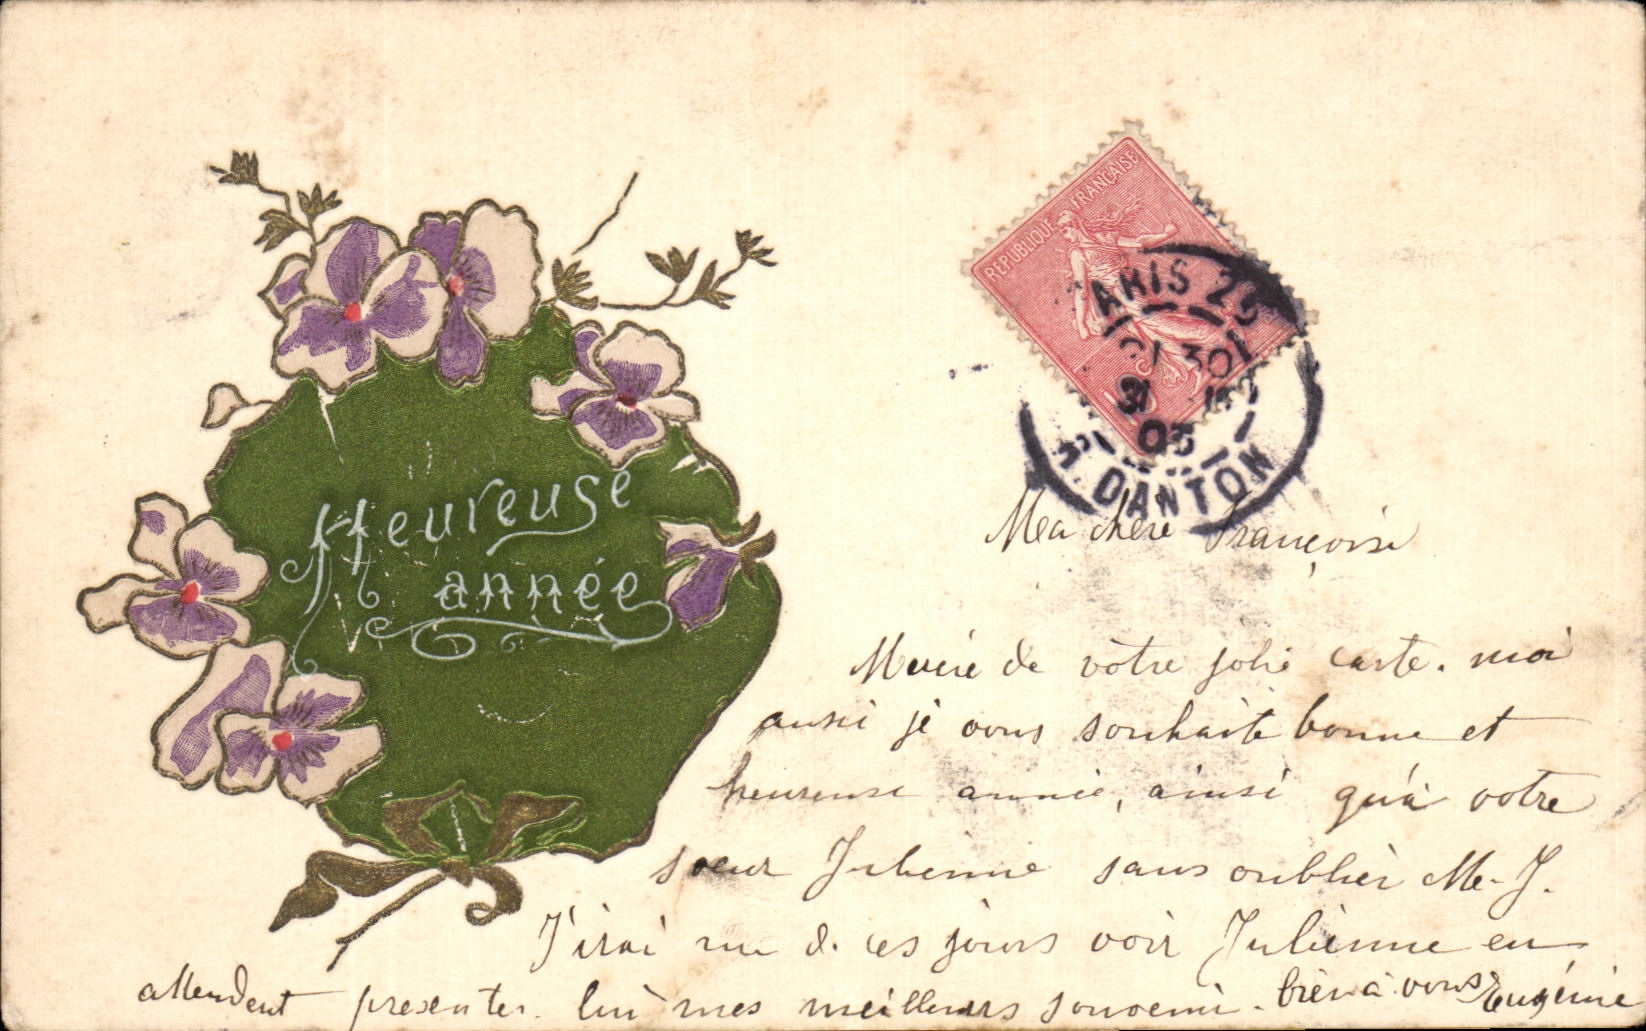 Heureuse
année
REPUBLIQUE FRANÇAISE
PARIS 25
31
05
R. DANTON
Ma chère Françoise
Merci de votre jolie carte. moi
aussi je vous souhaite bonne et
heureuse année, ainsi qu'à votre
sœur Julienne sans oublier Me. J.
J'irai un de ces jours voir Julienne en
attendent presenter. lui mes meilleurs souvenir. bien à vous Eugénie